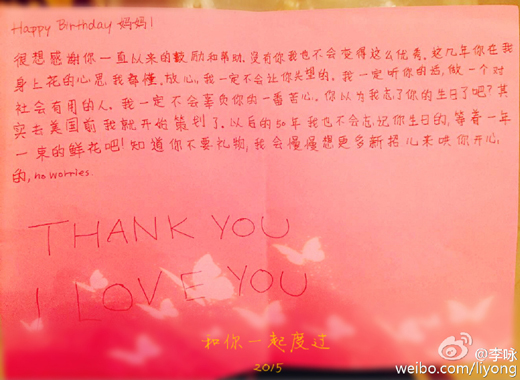 Happy Birthday 妈妈！
很想感谢你一直以来的鼓励和帮助，没有你我也不会变得这么优秀。这几年你在我
身上花的心思我都懂。放心，我一定不会让你失望的。我一定听你的话，做一个对
社会有用的人。我一定不会辜负你的一番苦心。你以为我忘了你的生日了吧？其
实去美国前我就开始策划了。以后的50年我也不会忘记你生日的，等着一年
一束的鲜花吧！知道你不要礼物，我会慢慢想更多新招儿来哄你开心
的，no worries.
THANK YOU
I LOVE YOU
和你一起度过
2015
@李咏
weibo.com/liyong